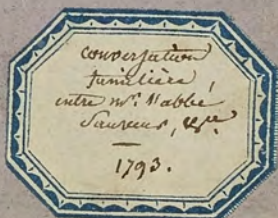 conversation
familière,
entre mr. l'abbé
&c.
1793.